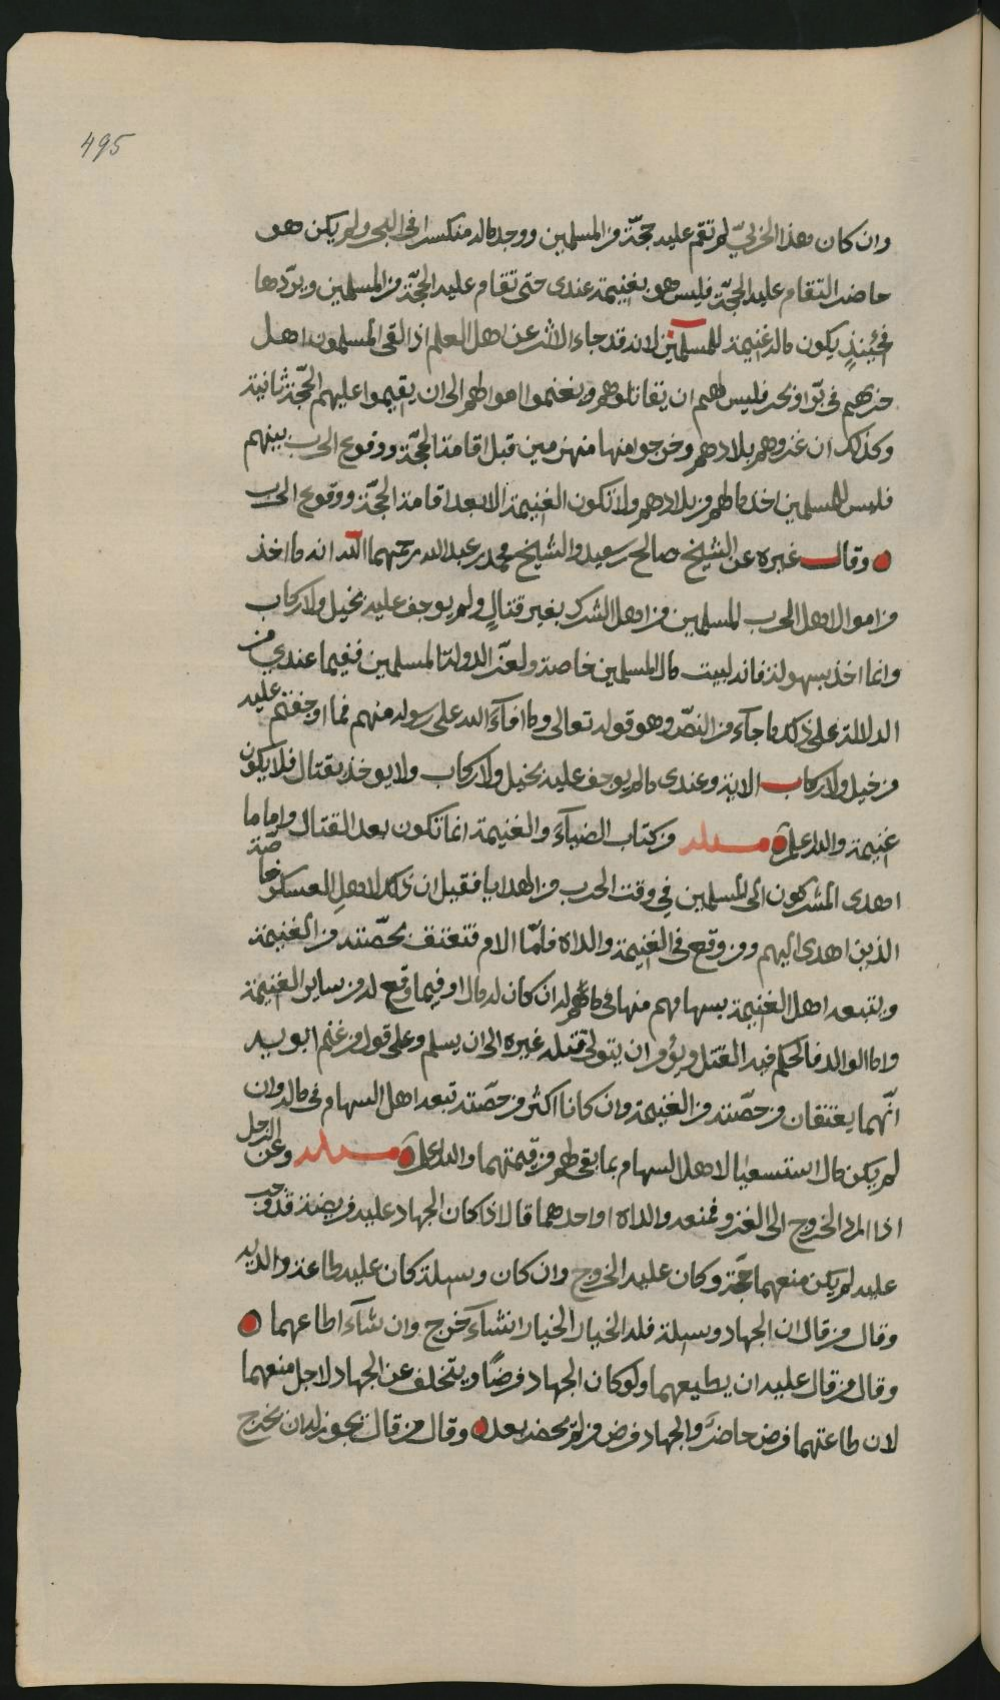 495
وان كان هذا الحربيّ لم تقم عليه حجّة من المسلمين ووجد ماله منكسرا في البحر ولم يكن هو
حاضر التقام عليه الحجّة فليس هو بغنيمة عندى حتى تقام عليه الحجّة من المسلمين ويردّها
فحينئذٍ يكون ماله غنيمة للمسلمين لانه قد جاء الاثر عن اهل العلم اذا لقى المسلمون اهل
حربهم في برّ او بحر فليس لهم ان يقاتلوهم ويغنموا اموالهم الى ان يقيموا عليهم الحجّة ثانية
وكذلك ان غزوهم بلادهم وخرجوا منها منهزمين قبل اقامة الحجّة ووقوع الحرب بينهم
فليس للمسلمين اخذ مالهم من بلادهم ولا تكون الغنيمة الا بعد اقامة الحجّة ووقوع الحرب
وقال غيره عن الشيخ صالح بن سعيد والشيخ محمد بن عبدالله رحمهما الله انه ما اخذ
من اموال اهل الحرب للمسلمين من اهل الشرك بغير قتالٍ ولم يوجف عليه بخيل ولا ركاب
وانما اخذ بسهولة فانه لبيت مال المسلمين خاصة ولعزّ الدولة المسلمين ففيما عندي من
الدلالة على ذلك ما جآء من النصّ وهو قوله تعالى وما افآء الله على رسوله منهم فما اوجفتم عليه
من خيل ولا ركاب الاية وعندى ما لم يوجف عليه بخيل ولا ركاب ولا يوخذ بقتال فلا يكون
غنيمة والله اعلم مسئلة من كتاب الضيآء والغنيمة انما تكون بعد القتال واما ما
اهدى المشركون الى المسلمين في وقت الحرب من الهدايا فقبل ان ذلك لاهل العسكر خاصّة
الذين اهدى اليهم ومن وقع في الغنيمة والداه فامّا الام فتعتق بحصّته من الغنيمة
ويتبعه اهل الغنيمة بسهامهم منها في مالهم له ان كان له مال او فيما وقع له من ساير الغنيمة
واما الوالد فالحكم فيه القتل ويؤمر ان يتولى قتله غيره الى ان يسلم وعلى قول من غنم ابويه
انّهما يعتقان من حصّته من الغنيمة وان كانا اكثر من حصّته تبعه اهل السهام في ماله وان
لم يكن مال استسعيا لاهل السهام بما بقى لهم من قيمتهما والله اعلم مسئلة وعن الرجل
اذا اراد الخروج الى الغزو فمنعه والداه او احدهما قال اذا كان الجهاد عليه فريضة قد وجب
عليه لم يكن منعهما حجّة وكان عليه الخروج وان كان وسيلة كان عليه طاعة والديه
وقال من قال ان الجهاد وسيلة فله الخيار الخيار ان شآء خرج وان شآء اطاعهما
وقال من قال عليه ان يطيعهما ولو كان الجهاد فرضًا ويتخلف عن الجهاد لاجل منعهما
لان طاعتهما فرض حاضر والجهاد فرض من لم يحضر بعد وقال من قال يجوز له ان يخرج